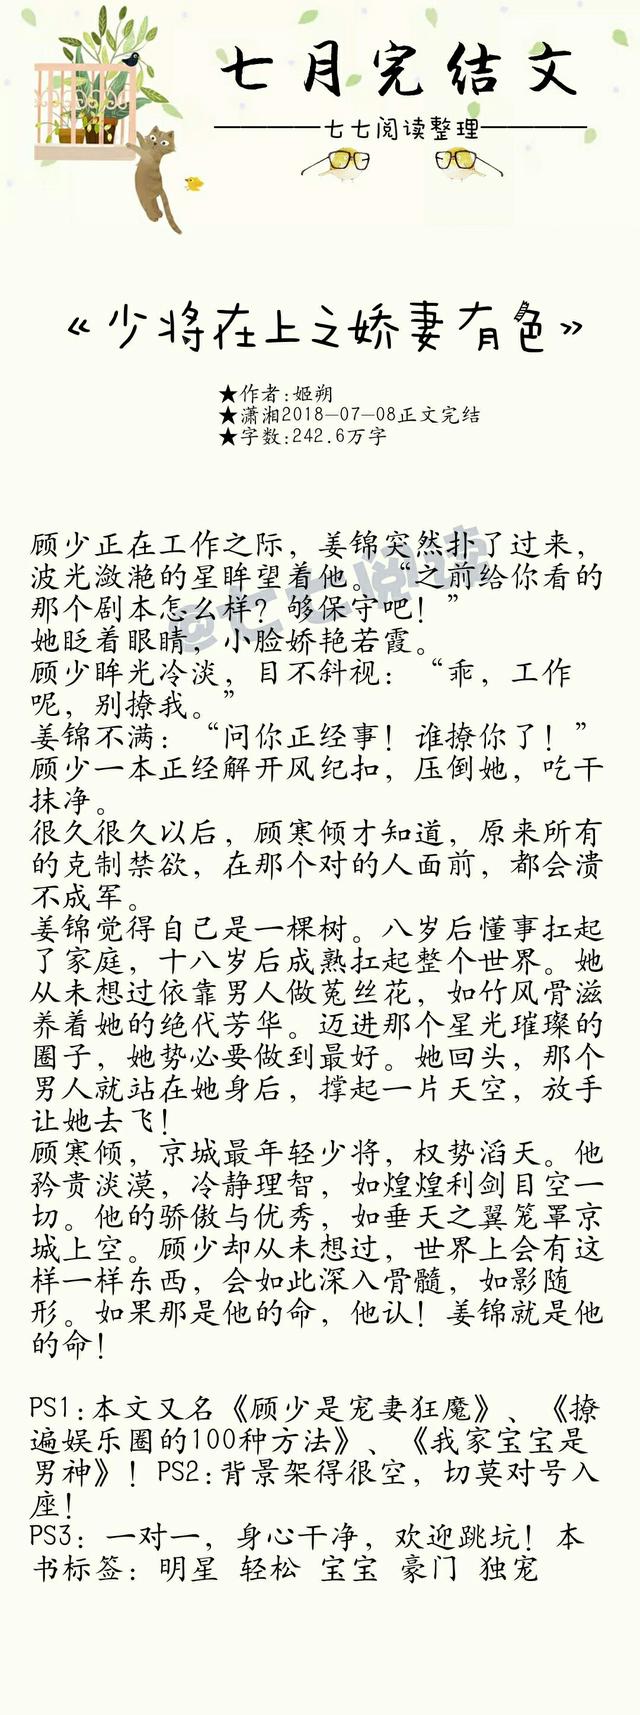 七月完结文
————七七阅读整理————
《少将在上之娇妻有色》
★作者:姬朔
★潇湘2018-07-08正文完结
★字数:242.6万字
顾少正在工作之际，姜锦突然扑了过来，
波光潋滟的星眸望着他。“之前给你看的
那个剧本怎么样？够保守吧！”
她眨着眼睛，小脸娇艳若霞。
顾少眸光冷淡，目不斜视：“乖，工作
呢，别撩我。”
姜锦不满：“问你正经事！谁撩你了！”
顾少一本正经解开风纪扣，压倒她，吃干
抹净。
很久很久以后，顾寒倾才知道，原来所有
的克制禁欲，在那个对的人面前，都会溃
不成军。
姜锦觉得自己是一棵树。八岁后懂事扛起
了家庭，十八岁后成熟扛起整个世界。她
从未想过依靠男人做菟丝花，如竹风骨滋
养着她的绝代芳华。迈进那个星光璀璨的
圈子，她势必要做到最好。她回头，那个
男人就站在她身后，撑起一片天空，放手
让她去飞！
顾寒倾，京城最年轻少将，权势滔天。他
矜贵淡漠，冷静理智，如煌煌利剑目空一
切。他的骄傲与优秀，如垂天之翼笼罩京
城上空。顾少却从未想过，世界上会有这
样一样东西，会如此深入骨髓，如影随
形。如果那是他的命，他认！姜锦就是他
的命！
PS1:本文又名《顾少是宠妻狂魔》、《撩
遍娱乐圈的100种方法》、《我家宝宝是
男神》！PS2:背景架得很空，切莫对号入
座！
PS3：一对一，身心干净，欢迎跳坑！本
书标签：明星 轻松 宝宝 豪门 独宠
@七七阅读